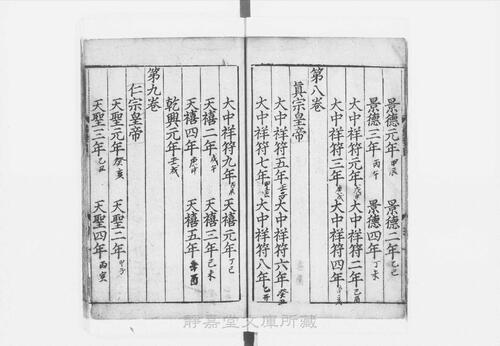 景德元年甲辰 景德二年乙巳
景德三年丙午 景德四年丁未
大中祥符元年戊申 大中祥符二年己酉
大中祥符三年庚戌 大中祥符四年辛亥
第八卷
眞宗皇帝
大中祥符五年壬子 大中祥符六年癸丑
大中祥符七年甲寅 大中祥符八年乙卯
大中祥符九年丙辰 天禧元年丁巳
天禧二年戊午 天禧三年己未
天禧四年庚申 天禧五年辛酉
乾興元年壬戌
第九卷
仁宗皇帝
天聖元年癸亥 天聖二年甲子
天聖三年乙丑 天聖四年丙寅
静嘉堂文庫所藏